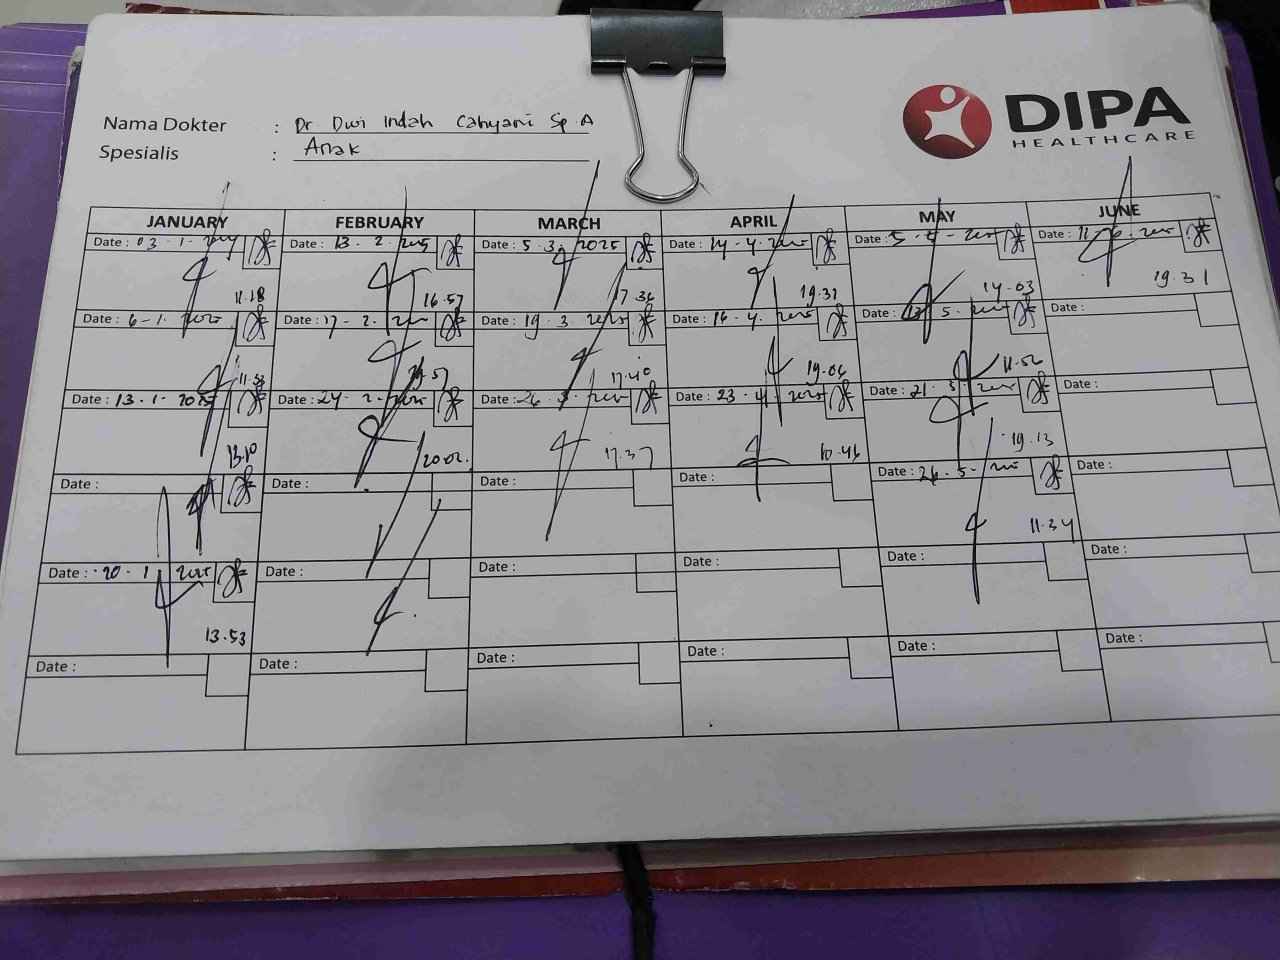 DIPA
HEALTHCARE
Nama Dokter : Dr Dwi Indah Cahyani Sp.A
Spesialis : Anak
JANUARY FEBRUARY MARCH APRIL MAY JUNE
Date : 03 - 1 - Date : 13 - 2 - 2025 Date : 5 - 3 - 2025 Date : 14 - 4 - 2025 Date : 5 - 5 - 2025 Date : 11 - 6 - 2025
11.18 16.57 17.36 19.31 14.03 19.31
Date : 6 - 1 - 2025 Date : 17 - 2 - 2025 Date : 19 - 3 - 2025 Date : 16 - 4 - 2025 Date : 5 - 2025 Date :
17.40 19.06 11.52
Date : 13 - 1 - 2025 Date : 24 - 2 - 2025 Date : 26 - 3 - 2025 Date : 23 - 4 - 2025 Date : 21 - 5 - 2025 Date :
13.10 20.02. 17.37 10.46 19.13
Date : Date : Date : Date : Date : 26 - 5 - 2025 Date :
11.34
Date : 20 - 1 - 2025 Date : Date : Date : Date : Date :
13.53
Date : Date : Date : Date : Date : Date :